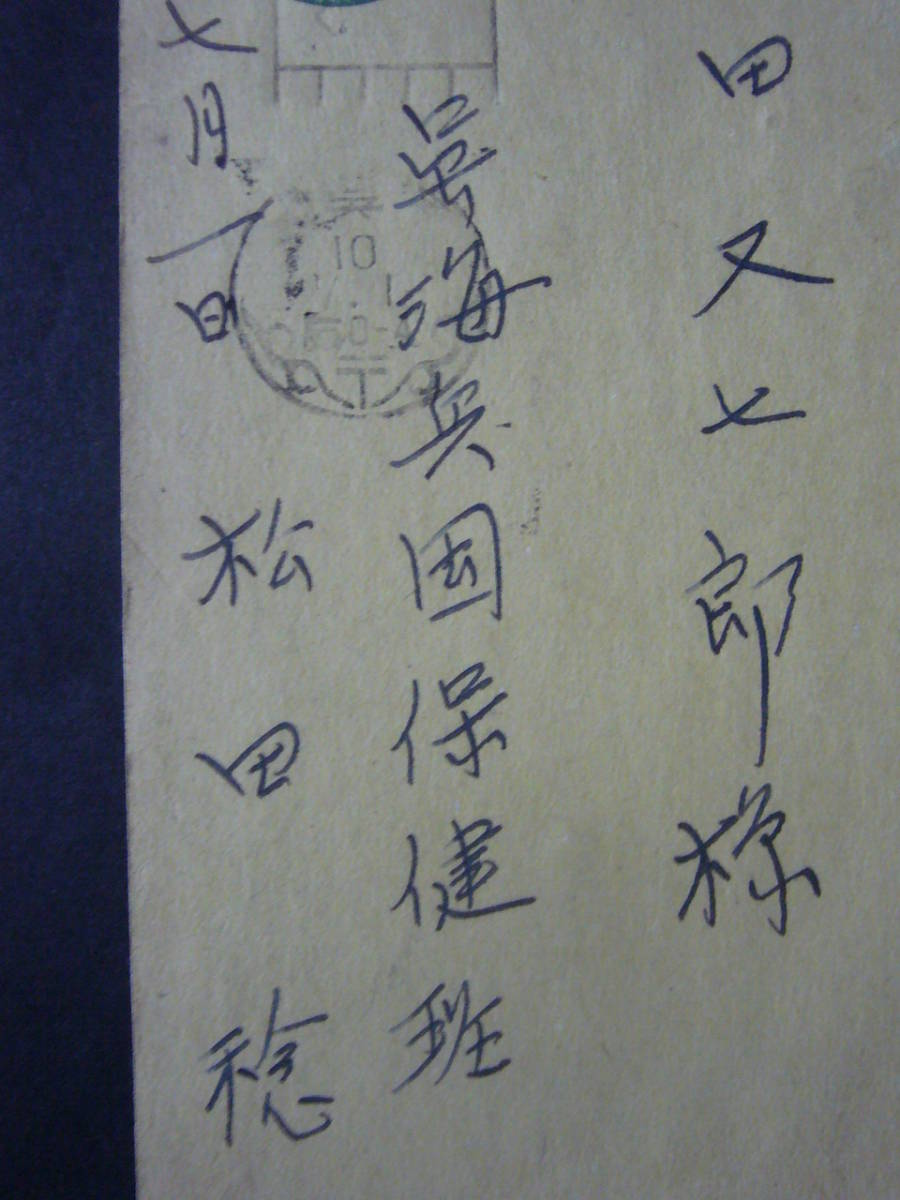 田又七郎様
呉海兵団保健班
七月一日 松田稔
呉
10